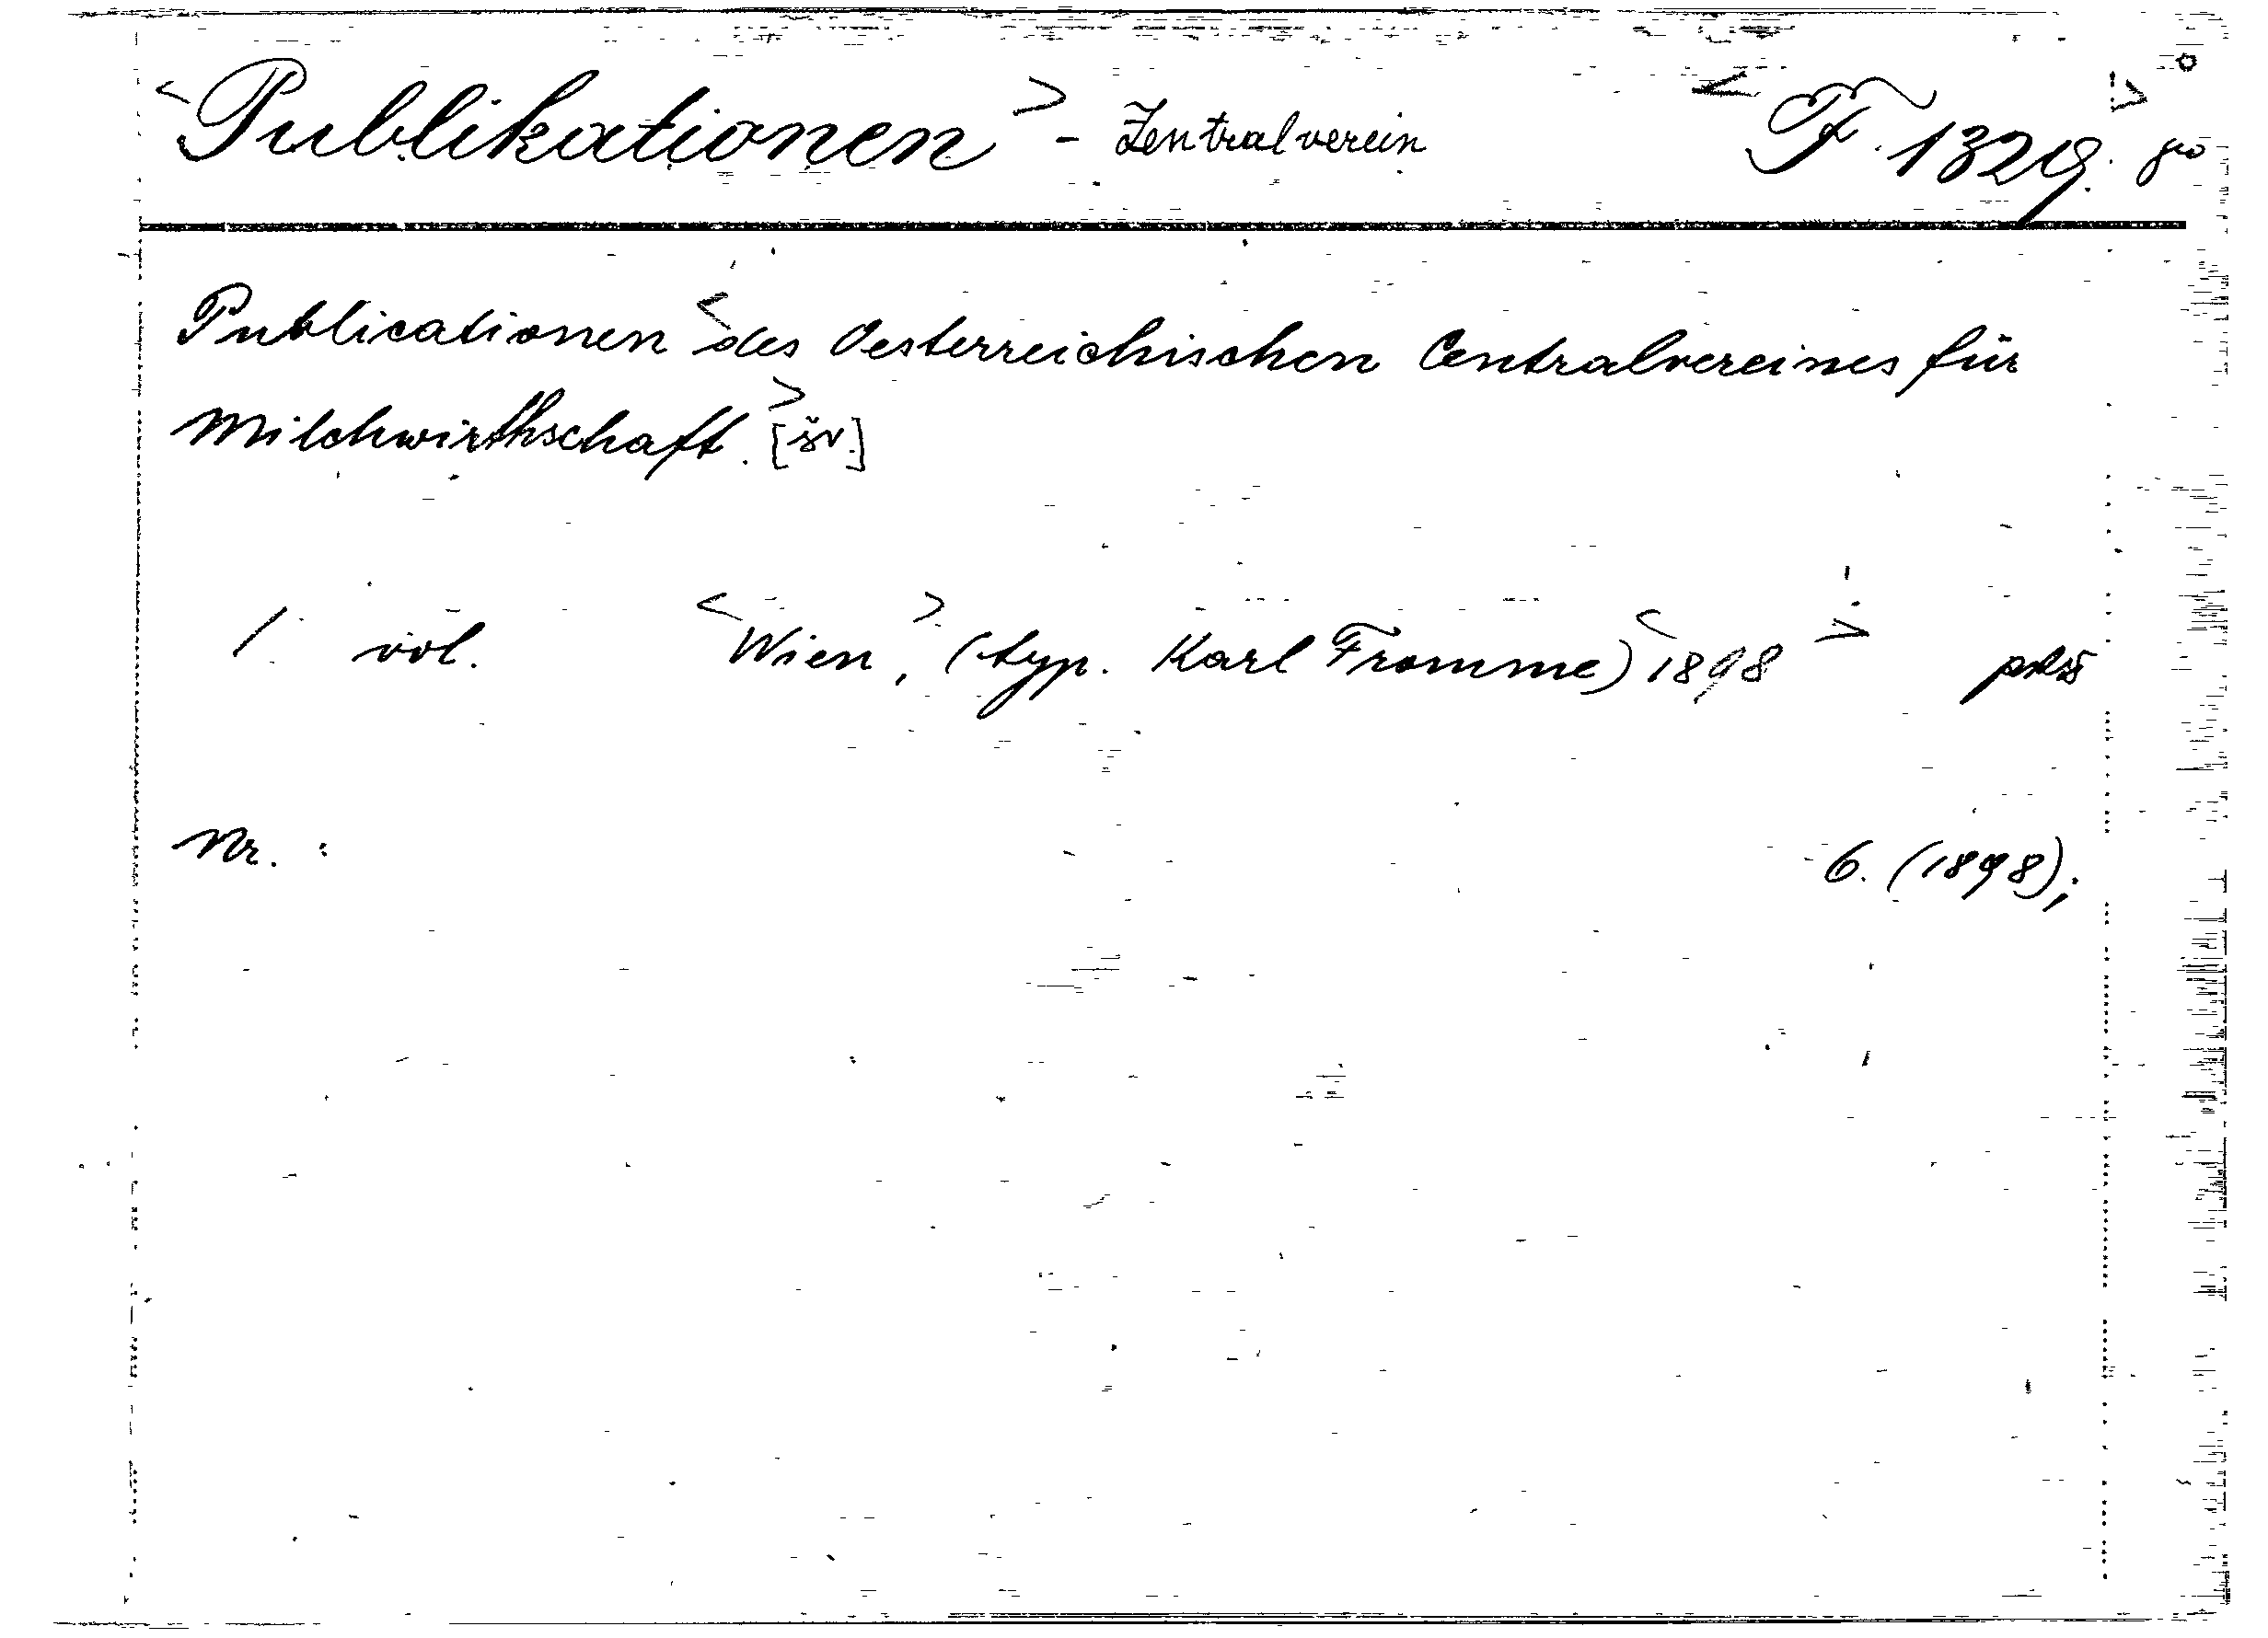 <Publikationen> - Zentralverein <F 1329.>
Publicationen <des Oesterreichischen Centralvereines für
Milchwirthschaft.> [šv.]
1 vol. <Wien,> (typ. Karl Fromme) <1898>
Nr. : 6. (1898);